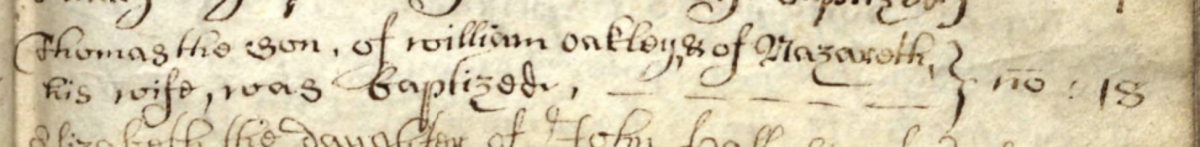 Thomas the son, of william oakley, & of Nazareth,
his wife, was baptized, — — — — — } no : 18
Elizabeth the daughter of John